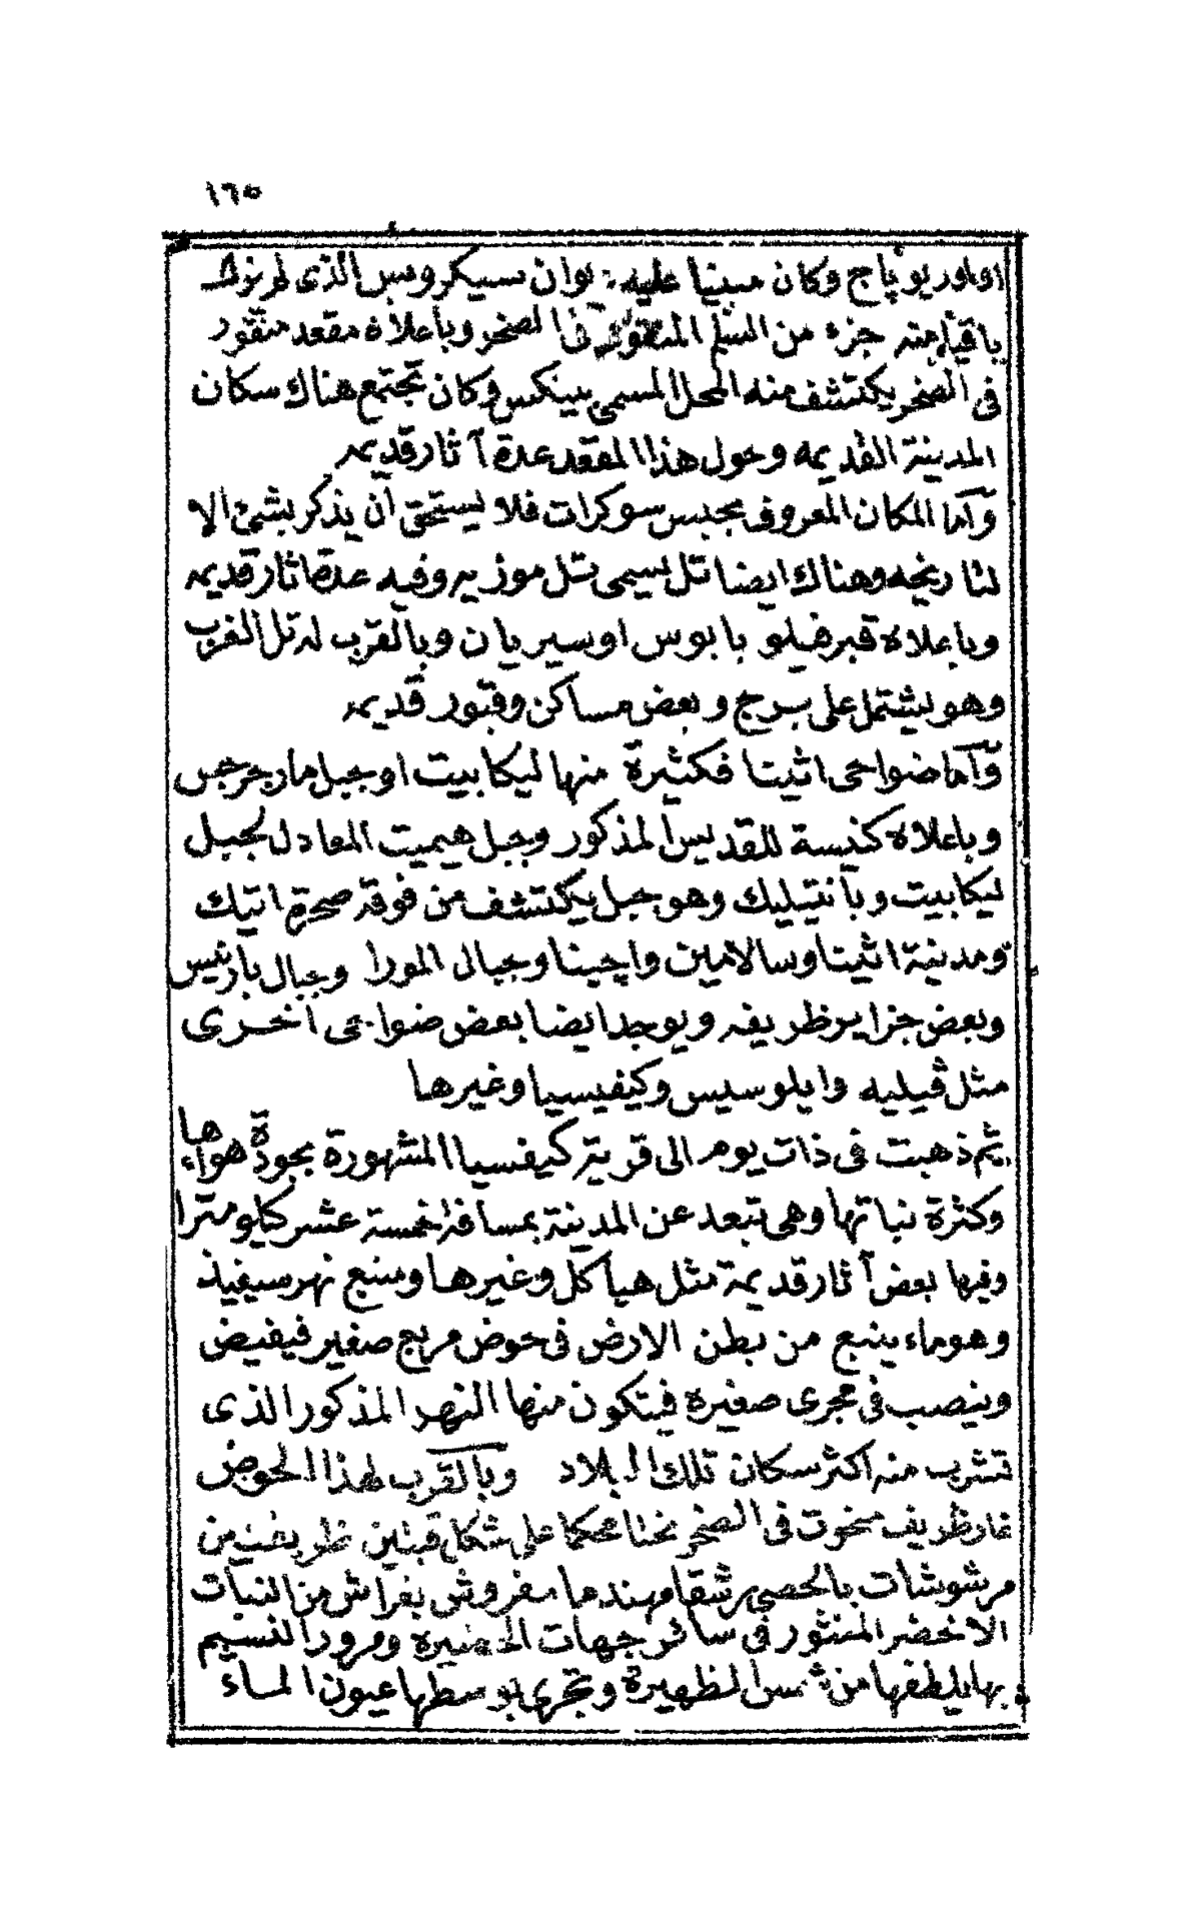 ١٦٥
اواوريو پاج وكان مبنيا عليه ديوان سيكروبس الذى لم يزل
باقيا منه جزء من السلم المنقوش فى الصخر وباعلاه مقعد منقور
فى الصخر يكتشف منه المحل المسمى بينكس وكان تجتمع هناك سكان
المدينة القديمه وحول هذا المقعد عدة آثار قديمه
وآما المكان المعروف بمجبس سوكرات فلا يستحق أن يذكر بشئ الا
لتاريخه وهناك ايضا تل يسمى بتل موزيه وفيه عدة اثار قديمه
وباعلاه قبر فيلو بابوس اوسيريان وبالقرب له تل الغرب
وهو يشتمل على برج وبعض مساكن وقبور قديمه
وآما ضواحى اثينا فكثيرة منها ليكابيت او جبل مارجرجس
وباعلاه كنيسة للقديس المذكور وجبل هيميت المعادل لجبل
ليكابيت وبآنتيليك وهو جبل يكتشف من فوقه صحرة اتيك
ومدينة اثينا وسالامين واچينا وجبال المورا وجبال بارنيس
وبعض جزاير ظريفه ويوجد ايضا بعض ضواحى آخرى
مثل ڤيليه وايلوسيس وكيفيسيا وغيرها
ثم ذهبت فى ذات يوم الى قرية كيفسيا المشهورة بجودة هواءها
وكثرة نباتها وهى تبعد عن المدينة بمسافة خمسة عشر كيلو مترا
وفيها بعض آثار قديمة مثل هياكل وغيرها ومنبع نهر سيفيذ
وهو ماء ينبع من بطن الارض فى حوض مربع صغير فيفيض
وينصب فى مجرى صغيرة فيتكون منها النهر المذكور الذى
تشرب منه اكثر سكان تلك البلاد وبالقرب لهذا الحوض
غار ظريف منحوت فى الصخر نحتا محكما على شكل قبتين ظريفتين
مرشوشات بالحصى رشقا مهندما مفروش بفراش من النبات
الاخضر المنثور فى سائر جهات الحضيرة ومرور النسيم
بها يلطفها من شمس الظهيرة وتجرى بوسطها عيون الماء